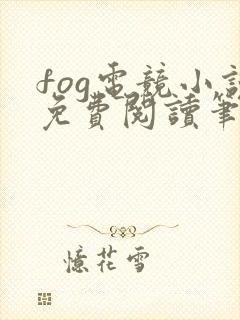 fog電競小說
免費閱讀筆
憶花雪